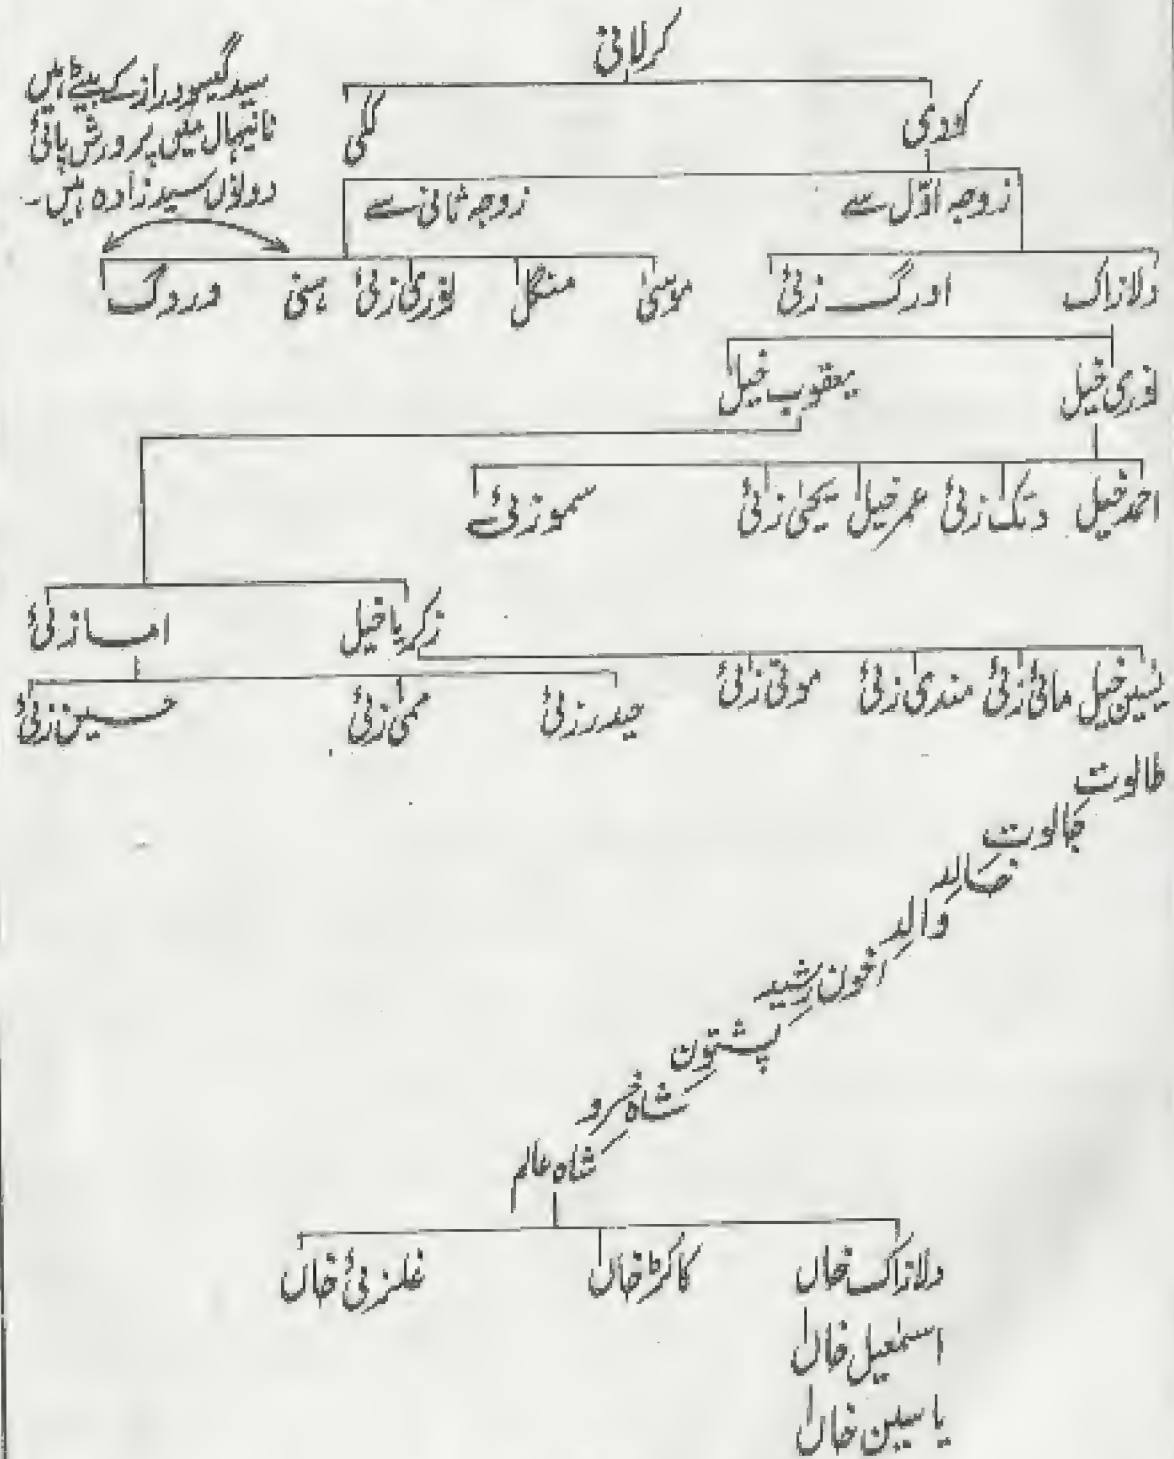 کرلانی
کودی
ککی
سید گیسو دراز کے بیٹے ہیں
نانیہال میں پرورش پائی
دولؤں سید زادہ ہیں۔
زوجہ اوّل سے
زوجہ ثانی سے
دلازاک
اورک زئی
موسیٰ
منگل
لوری زئی
ہنی
وردگ
لوری خیل
یعقوب خیل
احمد خیل
دتک زئی
عمر خیل
یحیٰی زئی
سموزئے
زکریا خیل
امازئی
یٰسین خیل
مائی زئی
مندی زئی
موتی زئی
حیدر زئی
ممی زئی
حسین زئی
طالوت
جالوت
خالد
والد
افون رشید
پشتون
شاہ خسرو
شاہ عالم
دلازاک خاں
کاکڑ خاں
غلزئی خاں
اسمٰعیل خاں
یاسین خاں